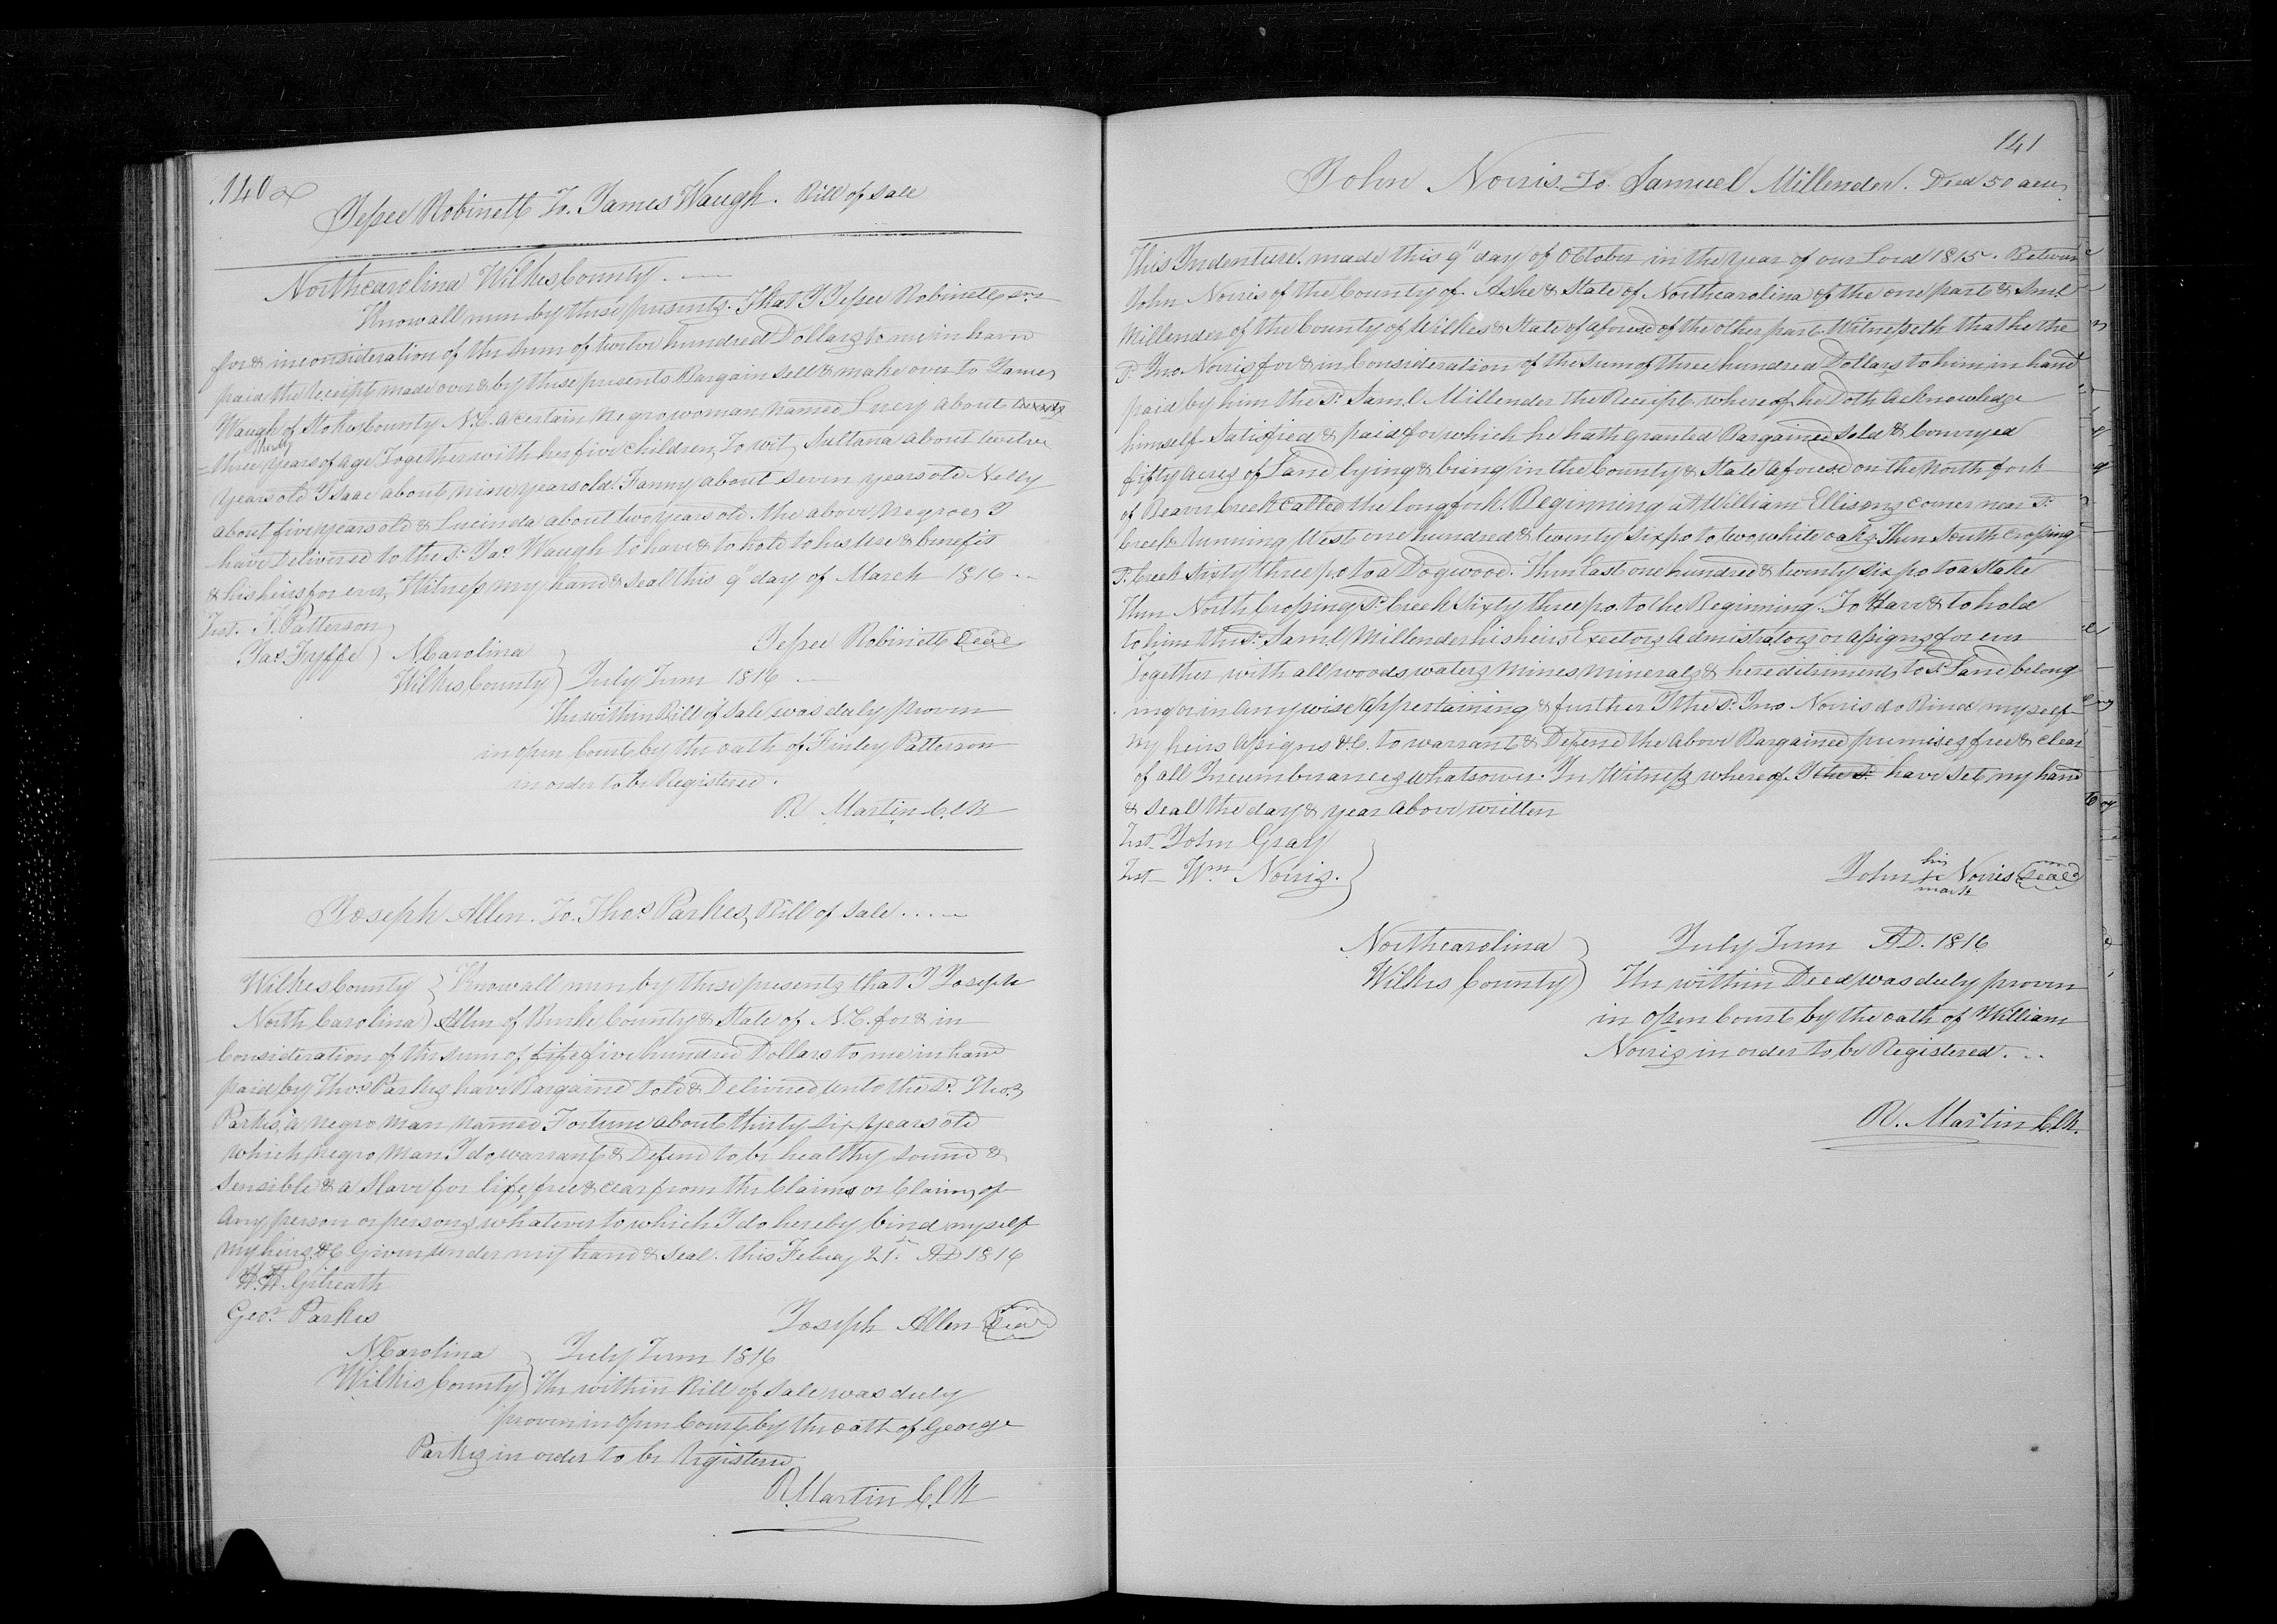 140
Jessee Robinett To. James Waugh. Bill of Sale
Northcarolina Wilkes County.
Know all men by these presents. That I Jessee Robinett Senr
for & in consideration of the sum of twelve hundred Dollars to me in hand
paid the Receipt made over & by these presents Bargain sell & make over to James
Waugh of Stokes County N.C. a certain negro woman named Lucy about twenty
thirty
three years of age Together with her five children To wit, Sultana about twelve
years old Isaac about nine years old. Fanny about seven years old Nelly
about five years old & Lucinda about two years old. the above Negroes I
have Delivered to the sd. Jas. Waugh to have & to hold to his use & benefit
& his heirs for ever, Witness my hand & seal this 9" day of March 1816
Test. F. Patterson
Jas. Fyffe
Jessee Robinett Seal
N. Carolina
Wilkes County
July Term 1816
The within Bill of Sale was duly proven
in open Court by the oath of Finley Patterson
in order to be Registered.
R. Martin C.l.k
Joseph Allen. To. Thos. Parkes, Bill of Sale
Wilkes County Know all men by these presents that I Joseph
North Carolina Allen of Burke County & State of N.C. for & in
Consideration of the sum of five hundred Dollars to me in hand
paid by Thos. Parks have Bargained Sold & Delivered unto the sd. Thos.
Parks, a negro man named Fortune about thirty six years old
which negro man I do warrant & Defend to be healthy sound &
sensible & a slave for life, free & cear from the Claims or Claims of
any person or persons whatever to which I do hereby bind myself
my heirs &C Given under my hand & seal. this Febuay 21st AD 1816
Gilreath
Geo. Parkes
Joseph Allen Seal
N. Carolina July Term 1816
Wilkes County The within Bill of Sale was duly
proven in open Court by the oath of George
Parks in order to be Registered
R. Martin C.l.k
141
John Norris. To. Samuel Millender. Deed 50 acres
This Indenture. made this 9" day of October in the year of our Lord 1815. Between
John Norris of the County of Ashe & State of Northcarolina of the one part & Saml
Millender of the County of Wilkes & State of aforesd of the other part. Witnesseth that he the
sd. Jno. Norris for & in Consideration of the sum of three hundred Dollars to him in hand
paid by him the sd. Saml. Millender the Receipt whereof he Doth acknowledge
himself Satisfied & paid for which he hath granted Bargained sold & Conveyed
fifty acres of Land lying & being in the County & State aforesd on the North fork
of Beaver Creek called the long fork. Beginning at William Ellisons corner near sd.
Creek Running West one hundred & twenty six po to two white oaks Then South Crossing
sd. Creek sixty three po. to a Dogwood. Then East one hundred & twenty six po to a Stake
Then North Crossing sd. Creek sixty three po. to the Beginning. To Have & to hold
to him the sd. Saml. Millender his heirs Exectors admistrators or assigns for ever
Together with all woods waters mines minerals & hereditiments to sd. Land belong
ing or in any wise appertaining & further I the sd. Jno Norris do Bind myself
my heirs assigns &C. to warrant & Defend the above Bargained premises free & clear
of all Incumberances whatsoever. In Witness whereof I the sd. have set my hand
& seal the day & year above written
Test John Gray
Test Wm. Norris.
his
John x Norris Seal
mark
Northcarolina July Term AD. 1816
Wilkes County The within Deed was duly proven
in open Court by the oath of William
Norris in order to be Registered.
R. Martin C.l.k.